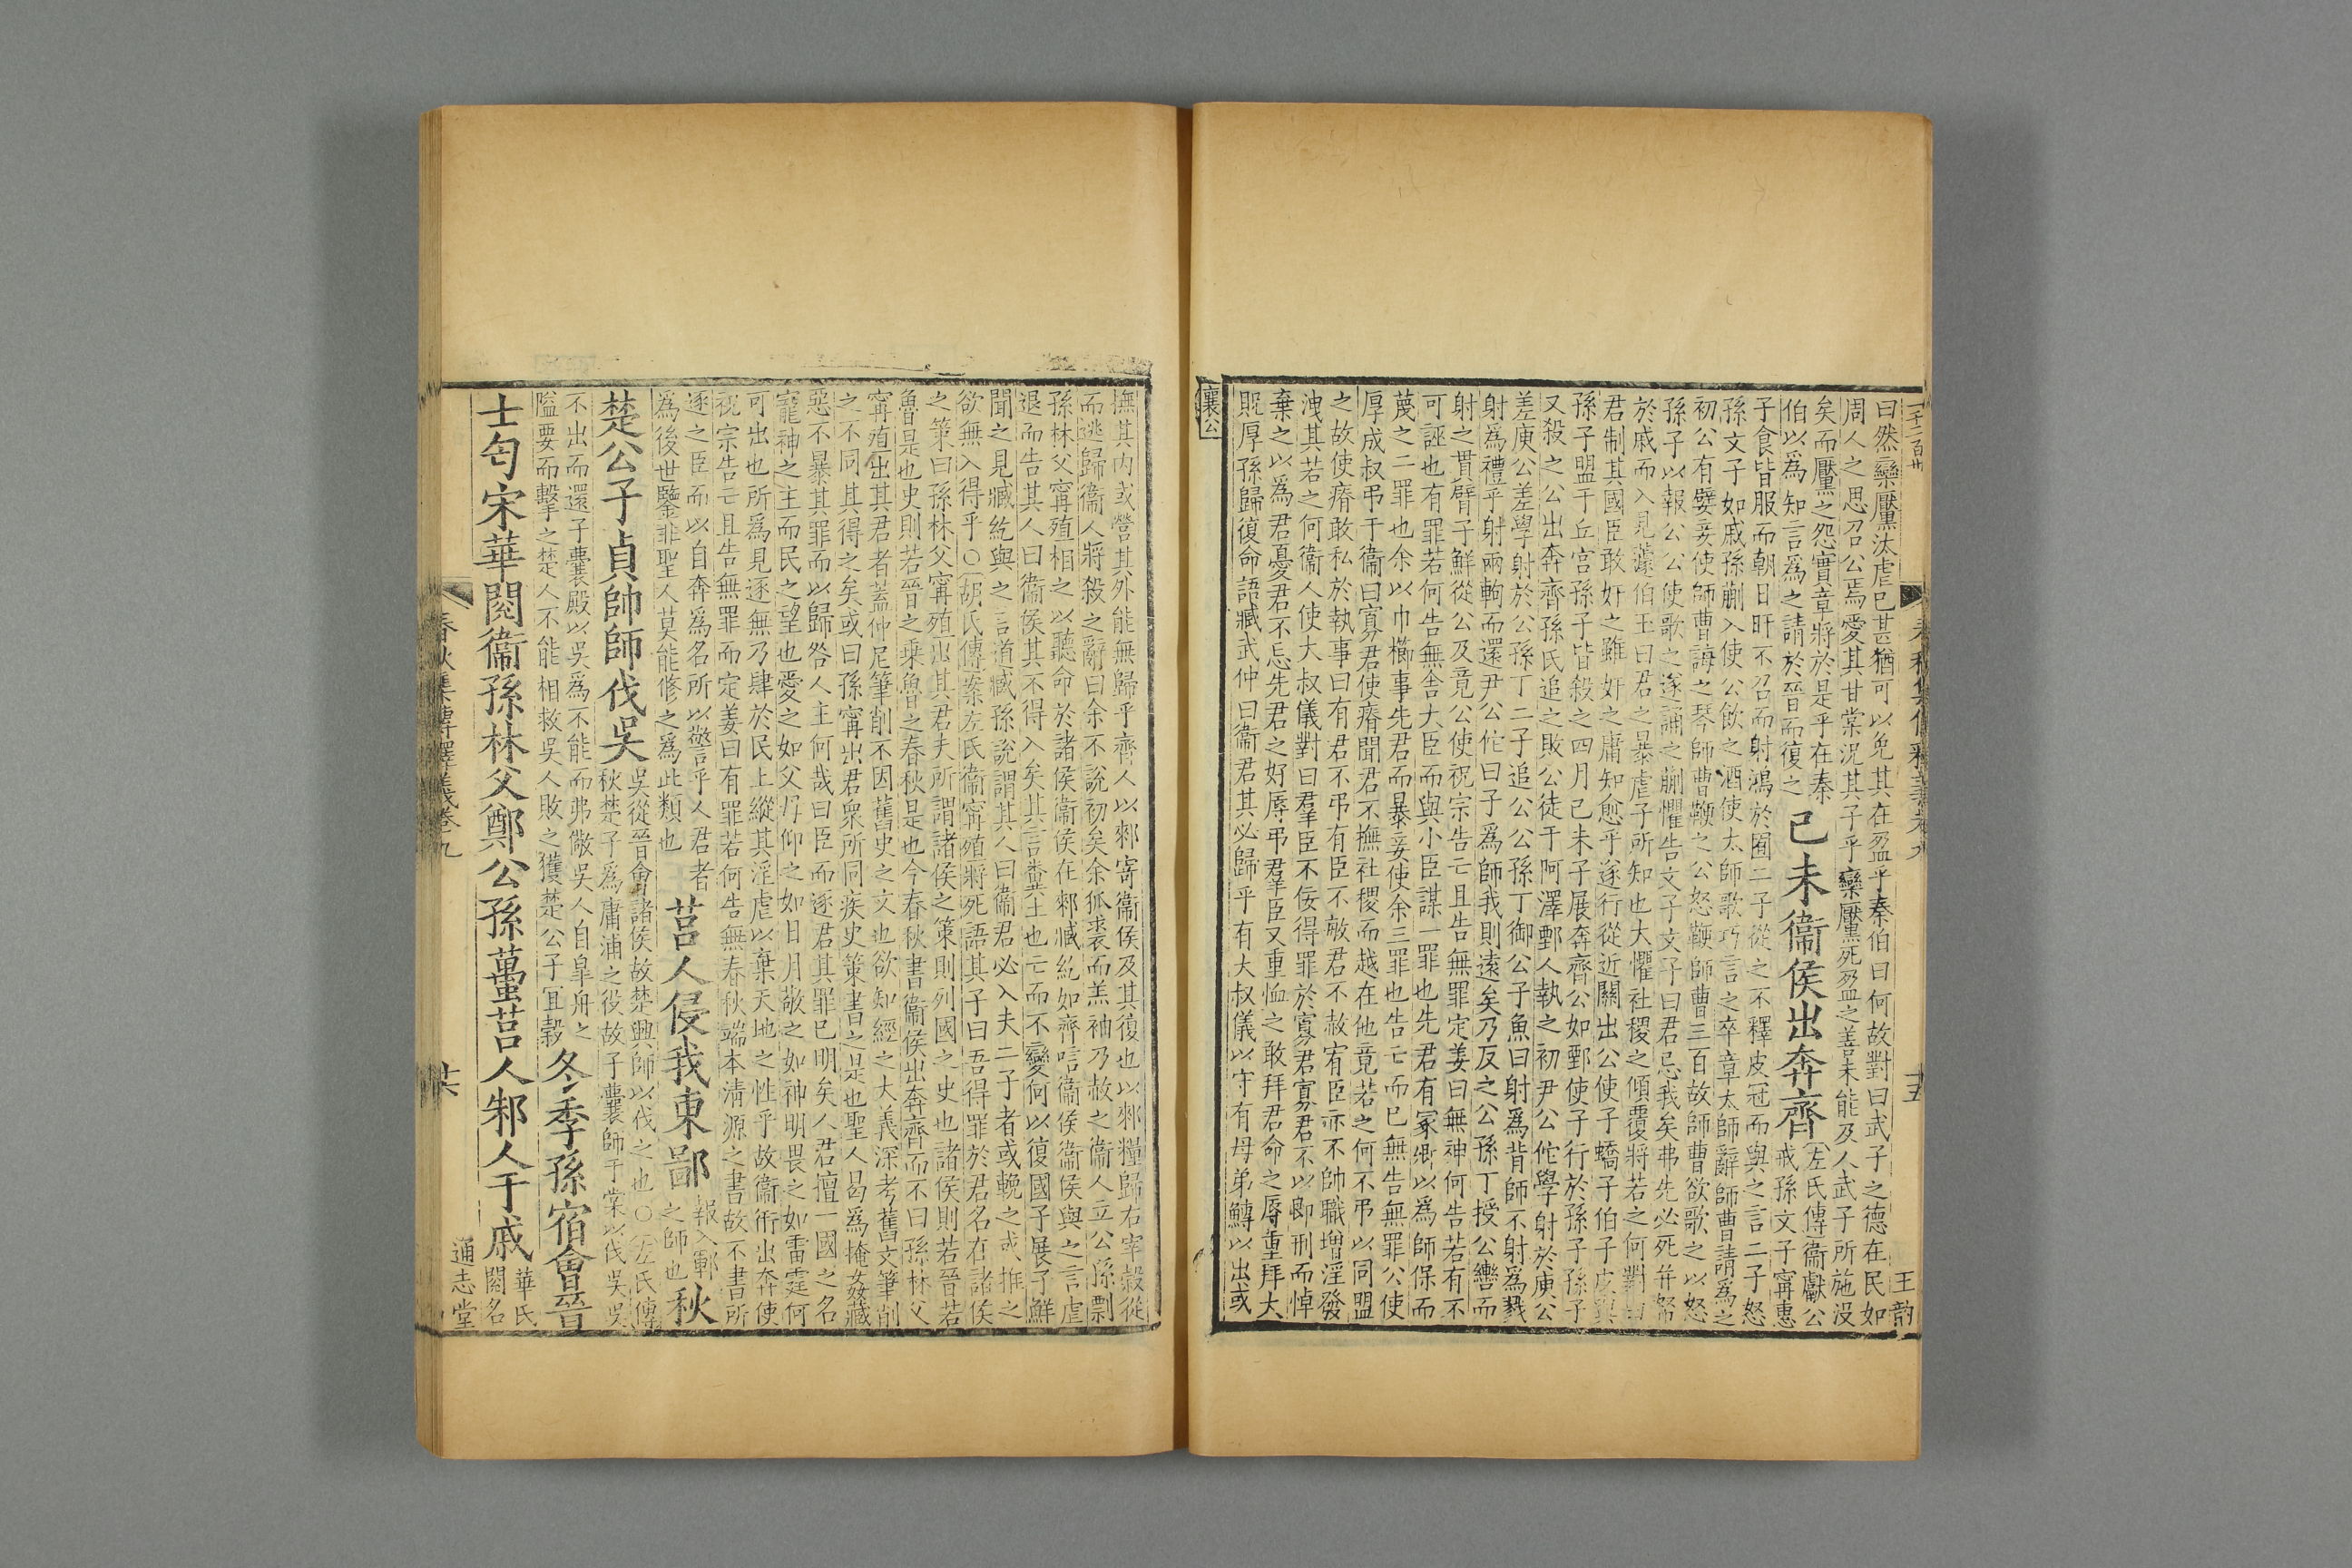 曰然欒黶汰虐已甚猶可以免其在盈乎秦伯曰何故對曰武子之德在民如
周人之思召公焉愛其甘棠況其子乎欒黶死盈之善未能及人武子所施沒
矣而黶之怨實章將於是乎在秦
伯以為知言為之請於晉而復之
己未衞侯出奔齊
左氏傳衞獻公
戒孫文子甯惠
子食皆服而朝日旰不召而射鴻於囿二子從之不釋皮冠而與之言二子怒
孫文子如戚孫蒯入使公飲之酒使太師歌巧言之卒章太師辭師曹請為之
初公有嬖妾使師曹誨之琴師曹鞭之公怒鞭師曹三百故師曹欲歌之以怒
孫子以報公公使歌之遂誦之蒯懼告文子文子曰君忌我矣弗先必死并帑
於戚而入見蘧伯玉曰君之暴虐子所知也大懼社稷之傾覆將若之何對曰
君制其國臣敢奸之雖奸之庸知愈乎遂行從近關出公使子蟜子伯子皮與
孫子盟于丘宮孫子皆殺之四月己未子展奔齊公如鄄使子行於孫子孫子
又殺之公出奔齊孫氏追之敗公徒于阿澤鄄人執之初尹公佗學射於庾公
差庾公差學射於公孫丁二子追公公孫丁御公子魚曰射為背師不射為戮
射為禮乎射兩軥而還尹公佗曰子為師我則遠矣乃反之公孫丁授公轡而
射之貫臂子鮮從公及竟公使祝宗告亡且告無罪定姜曰無神何告若有不
可誣也有罪若何告無舍大臣而與小臣謀一罪也先君有冢卿以為師保而
蔑之二罪也余以巾櫛事先君而暴妾使余三罪也告亡而已無告無罪公使
厚成叔弔于衞曰寡君使瘠聞君不撫社稷而越在他竟若之何不弔以同盟
之故使瘠敢私於執事曰有君不弔有臣不敏君不赦宥臣亦不帥職增淫發
洩其若之何衞人使大叔儀對曰羣臣不佞得罪於寡君寡君不以卽刑而悼
棄之以為君憂君不忘先君之好辱弔羣臣又重恤之敢拜君命之辱重拜大
貺厚孫歸復命語臧武仲曰衞君其必歸乎有大叔儀以守有母弟鱄以出或
襄公
撫其內或營其外能無歸乎齊人以郲寄衞侯及其復也以郲糧歸右宰穀從
而逃歸衞人將殺之辭曰余不說初矣余狐裘而羔袖乃赦之衞人立公孫剽
孫林父甯殖相之以聽命於諸侯衞侯在郲臧紇如齊唁衞侯衞侯與之言虐
退而告其人曰衞侯其不得入矣其言糞土也亡而不變何以復國子展子鮮
聞之見臧紇與之言道臧孫說謂其人曰衞君必入夫二子者或輓之或推之
欲無入得乎○胡氏傳案左氏衞甯殖將死語其子曰吾得罪於君名在諸侯
之策曰孫林父甯殖出其君夫所謂諸侯之策則列國之史也諸侯則若晉若
魯是也史則若晉之乘魯之春秋是也今春秋書衞侯出奔齊而不曰孫林父
甯殖出其君者蓋仲尼筆削不因舊史之文也欲知經之大義深考舊文筆削
之不同其得之矣或曰孫甯出君衆所同疾史策書之是也聖人曷為掩姦藏
惡不暴其罪而以歸咎人主何哉曰臣而逐君其罪已明矣人君擅一國之名
寵神之主而民之望也愛之如父母仰之如日月敬之如神明畏之如雷霆何
可出也所為見逐無乃肆於民上縱其淫虐以棄天地之性乎故衞衎出奔使
祝宗告亡且告無罪而定姜曰有罪若何告無春秋端本清源之書故不書所
逐之臣而以自奔為名所以警乎人君者
為後世鑒非聖人莫能修之為此類也
莒人侵我東鄙
報入鄆
之師也
秋
楚公子貞帥師伐吳
吳從晉會諸侯故楚興師以伐之也○左氏傳
秋楚子為庸浦之役故子囊師于棠以伐吳吳
不出而還子囊殿以吳為不能而弗儆吳人自皐舟之
隘要而擊之楚人不能相救吳人敗之獲楚公子宜穀
冬季孫宿會晉
士匄宋華閱衞孫林父鄭公孫蠆莒人邾人于戚
華氏
閱名
通志堂
春秋集傳釋義卷九